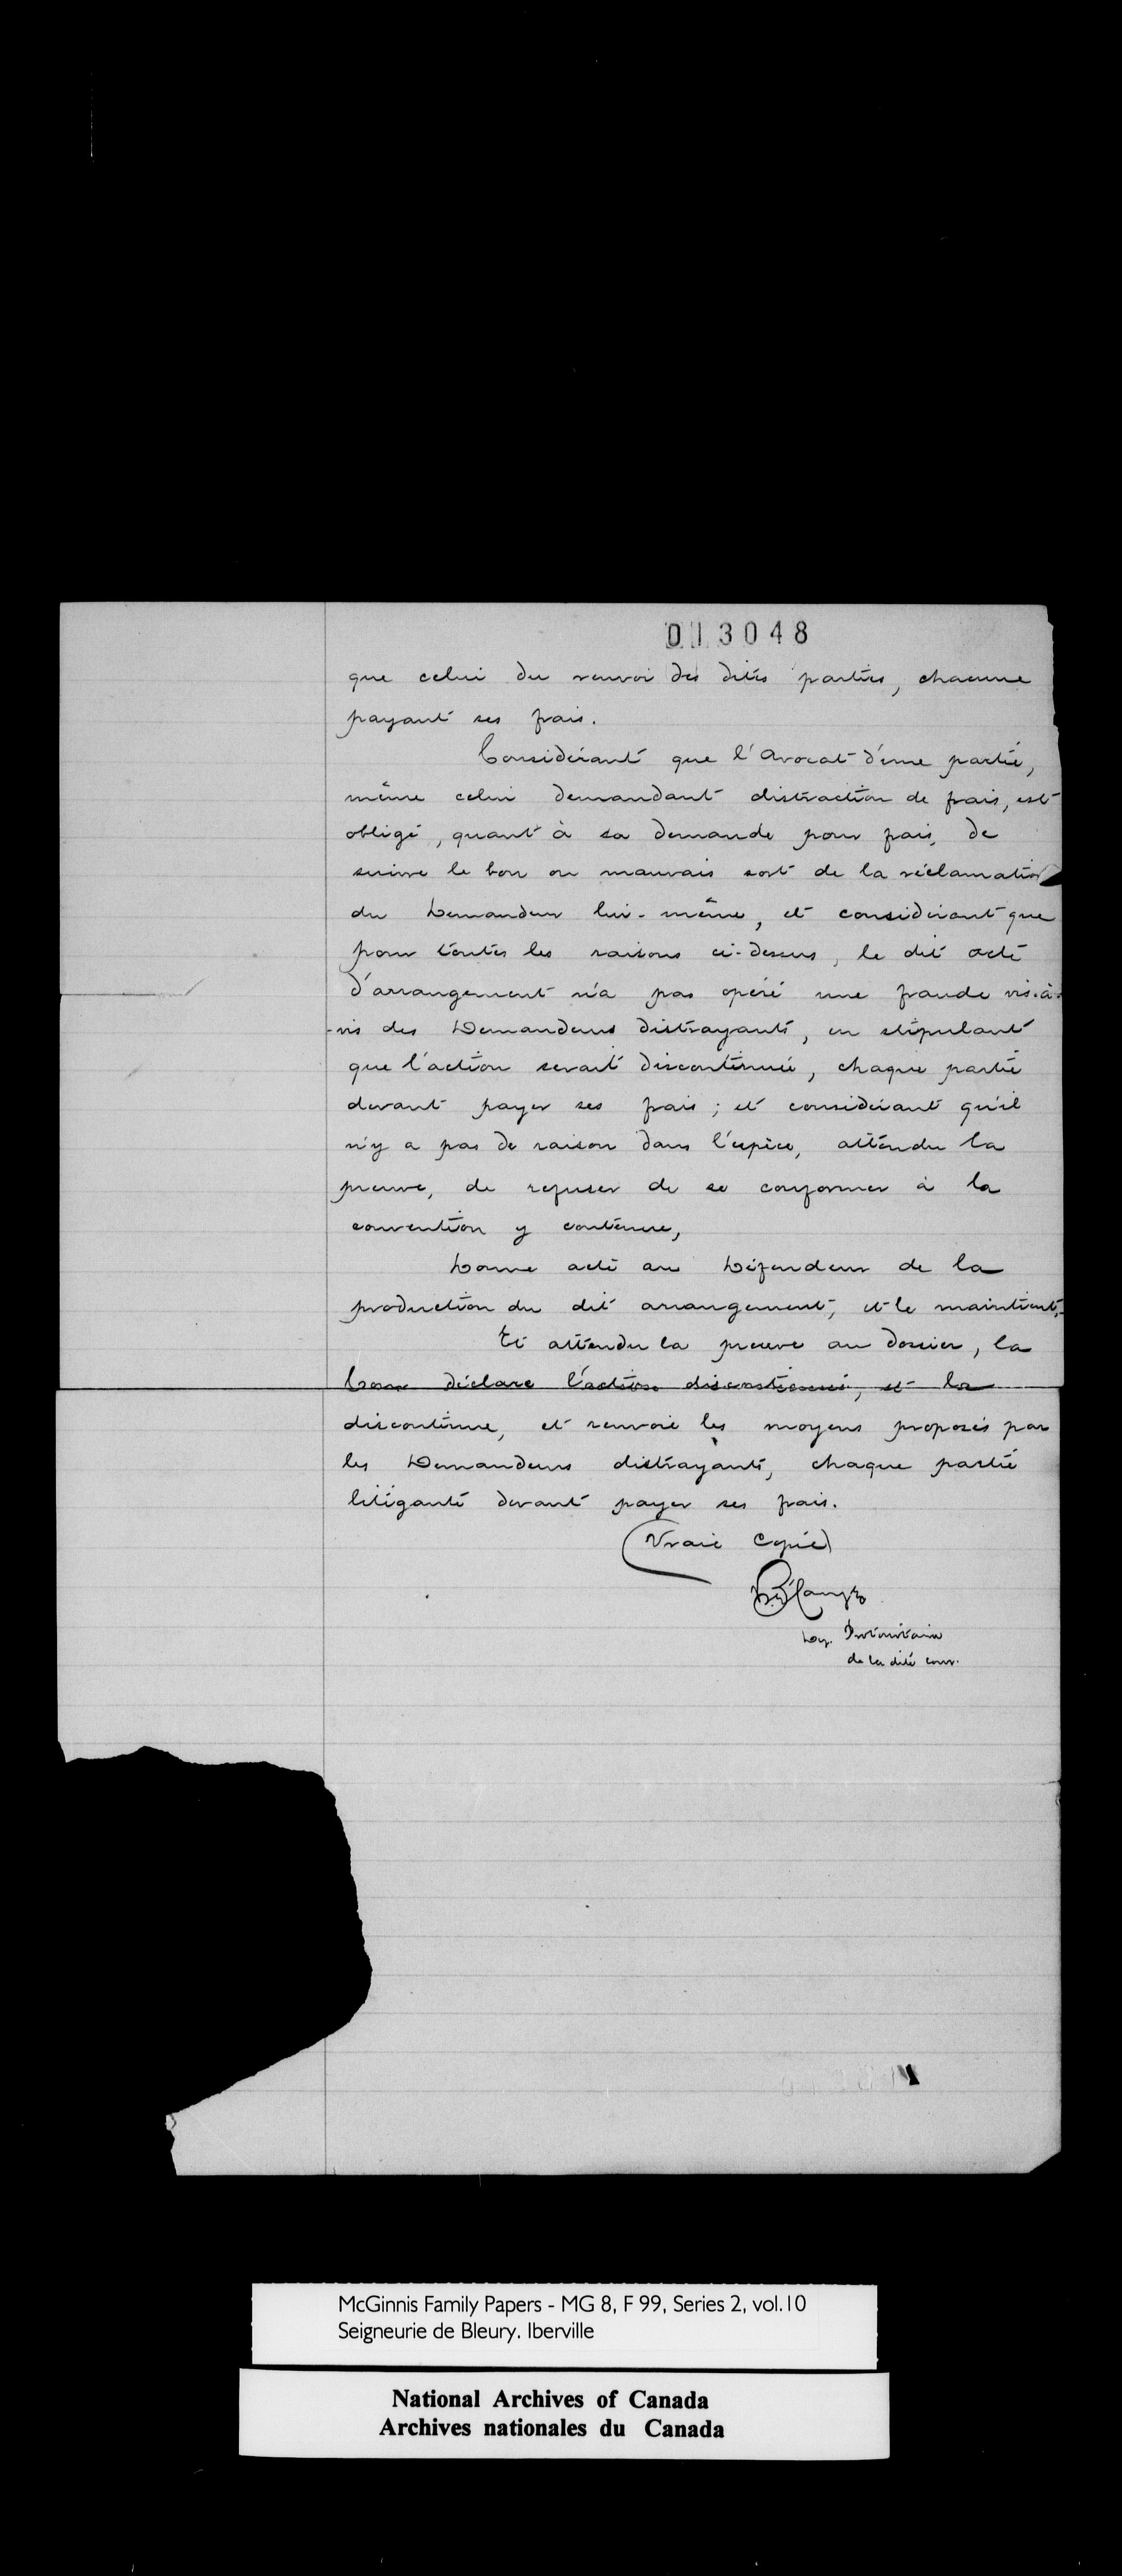 013048
que celui du renvoi des dites parties, chacune
payant ses frais.
Considérant que l'avocat d'une partie,
même celui demandant distraction de frais, est
obligé, quant à sa demande pour frais, de
suivre le bon ou mauvais sort de la réclamation
du Demandeur lui-même, et considérant que
pour toutes les raisons ci-dessus, le dit acte
d'arrangement n'a pas opéré une fraude vis-à-
-vis des Demandeurs distrayants, en stipulant
que l'action serait discontinuée, chaque partie
devant payer ses frais; et considérant qu'il
n'y a pas de raison dans l'espèce, attendu la
preuve, de refuser de se conformer à la
convention y contenue,
Donne acte au Défendeur de la
production du dit arrangement, et le maintient,
Et attendu la preuve au dossier, la
Cour déclare l'action discontinuée, et la
discontinue, et renvoie les moyens proposés par
les Demandeurs distrayants, chaque partie
litigante devant payer ses frais.
(Vraie Copie)
Dep. Protonotaire
de la dite cour.
McGinnis Family Papers - MG 8, F 99, Series 2, vol.10
Seigneurie de Bleury. Iberville
National Archives of Canada
Archives nationales du Canada